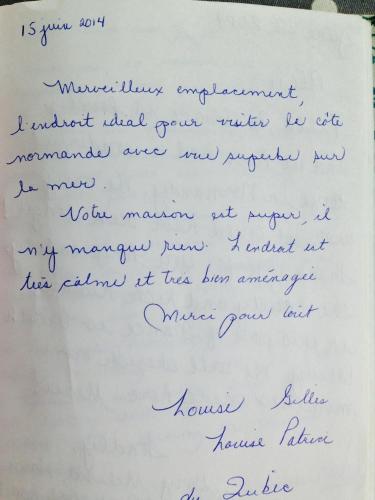 15 juin 2014
Merveilleux emplacement,
l'endroit ideal pour visiter le côte
normande avec vue superbe sur
la mer.
Votre maison est super, il
n'y manque rien. L'endroit est
très calme et très bien aménagée
Merci pour tout
Louise Gilles
Louise Patrice
du Québec